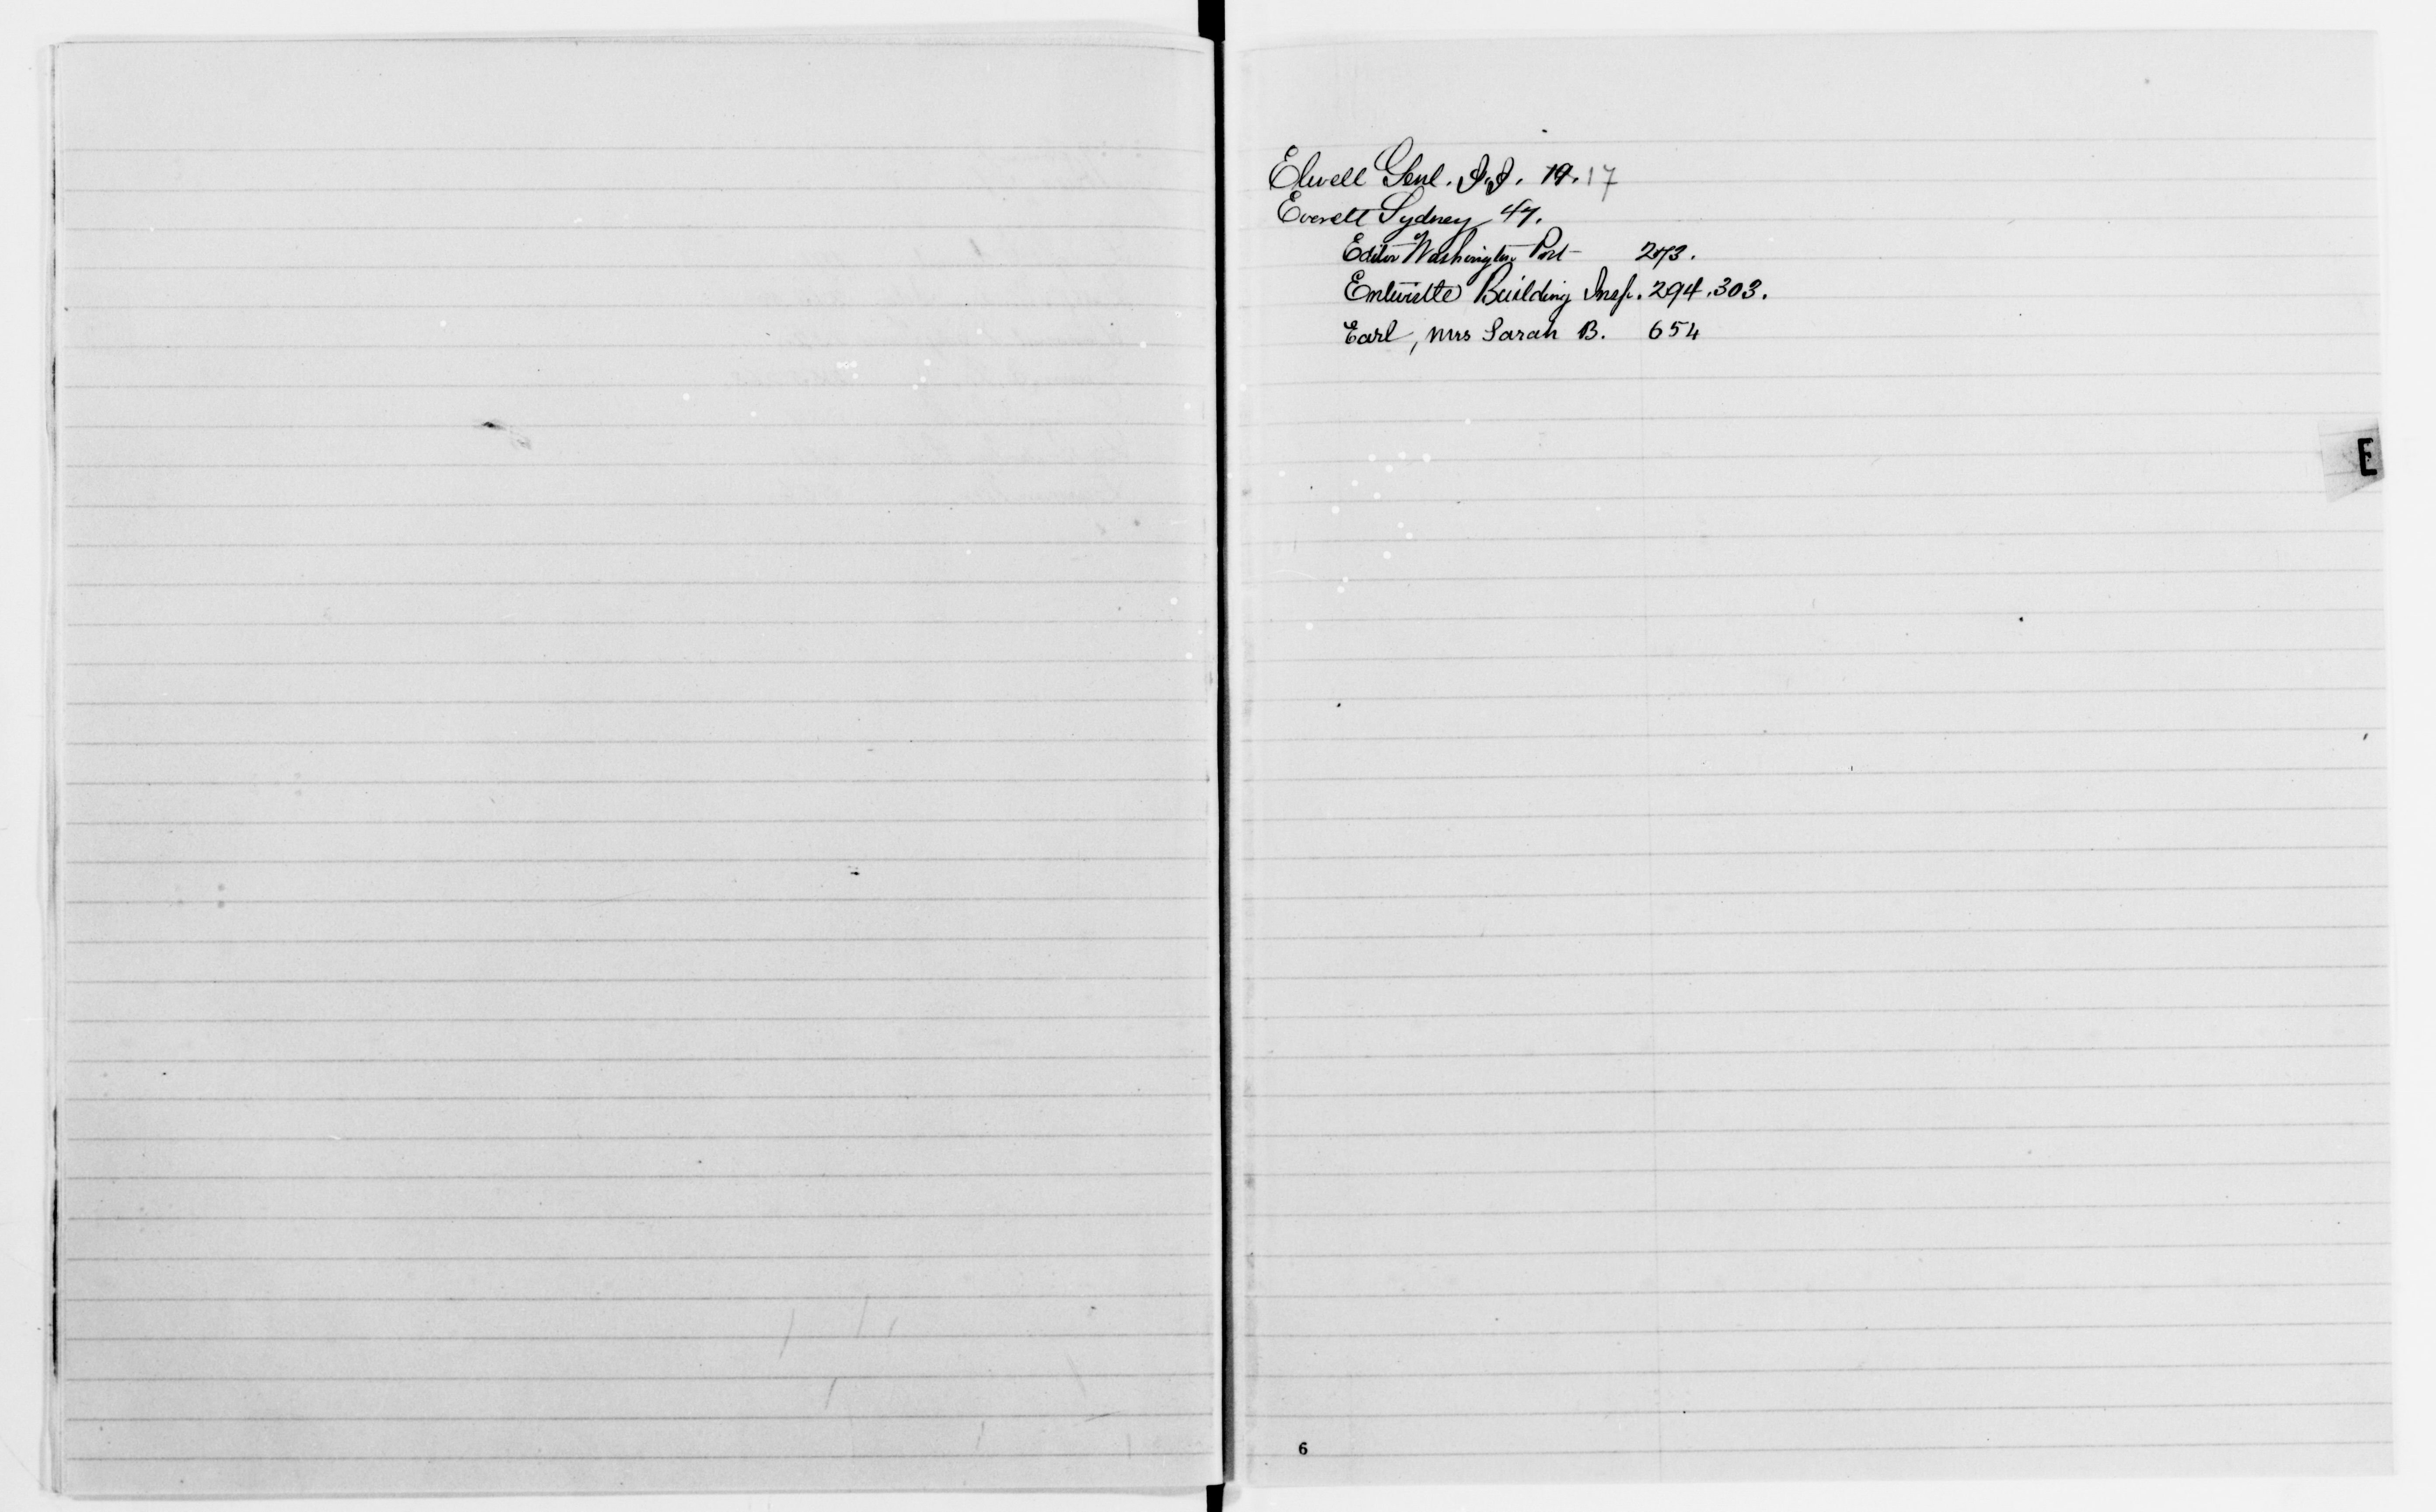 Elwell Genl. J.J. 19. 17
Everett Sydney 47.
Editor Washington Post 273.
Entwistle Building Insp. 294. 303.
Earl, Mrs Sarah B. 654
E
6